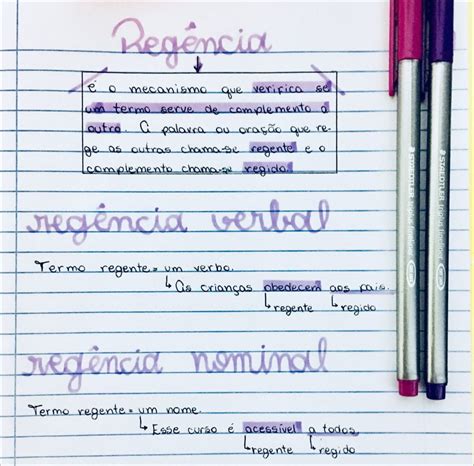 Regência
é o mecanismo que verifica se
um termo serve de complemento a
outro. A palavra ou oração que re-
ge as outras chama-se regente e o
complemento chama-se regido.
regência verbal
Termo regente = um verbo.
As crianças obedecem aos pais.
regente regido
regência nominal
Termo regente = um nome.
Esse curso é acessível a todos
regente regido
STAEDTLER triplus fineliner
STAEDTLER triplus fineliner